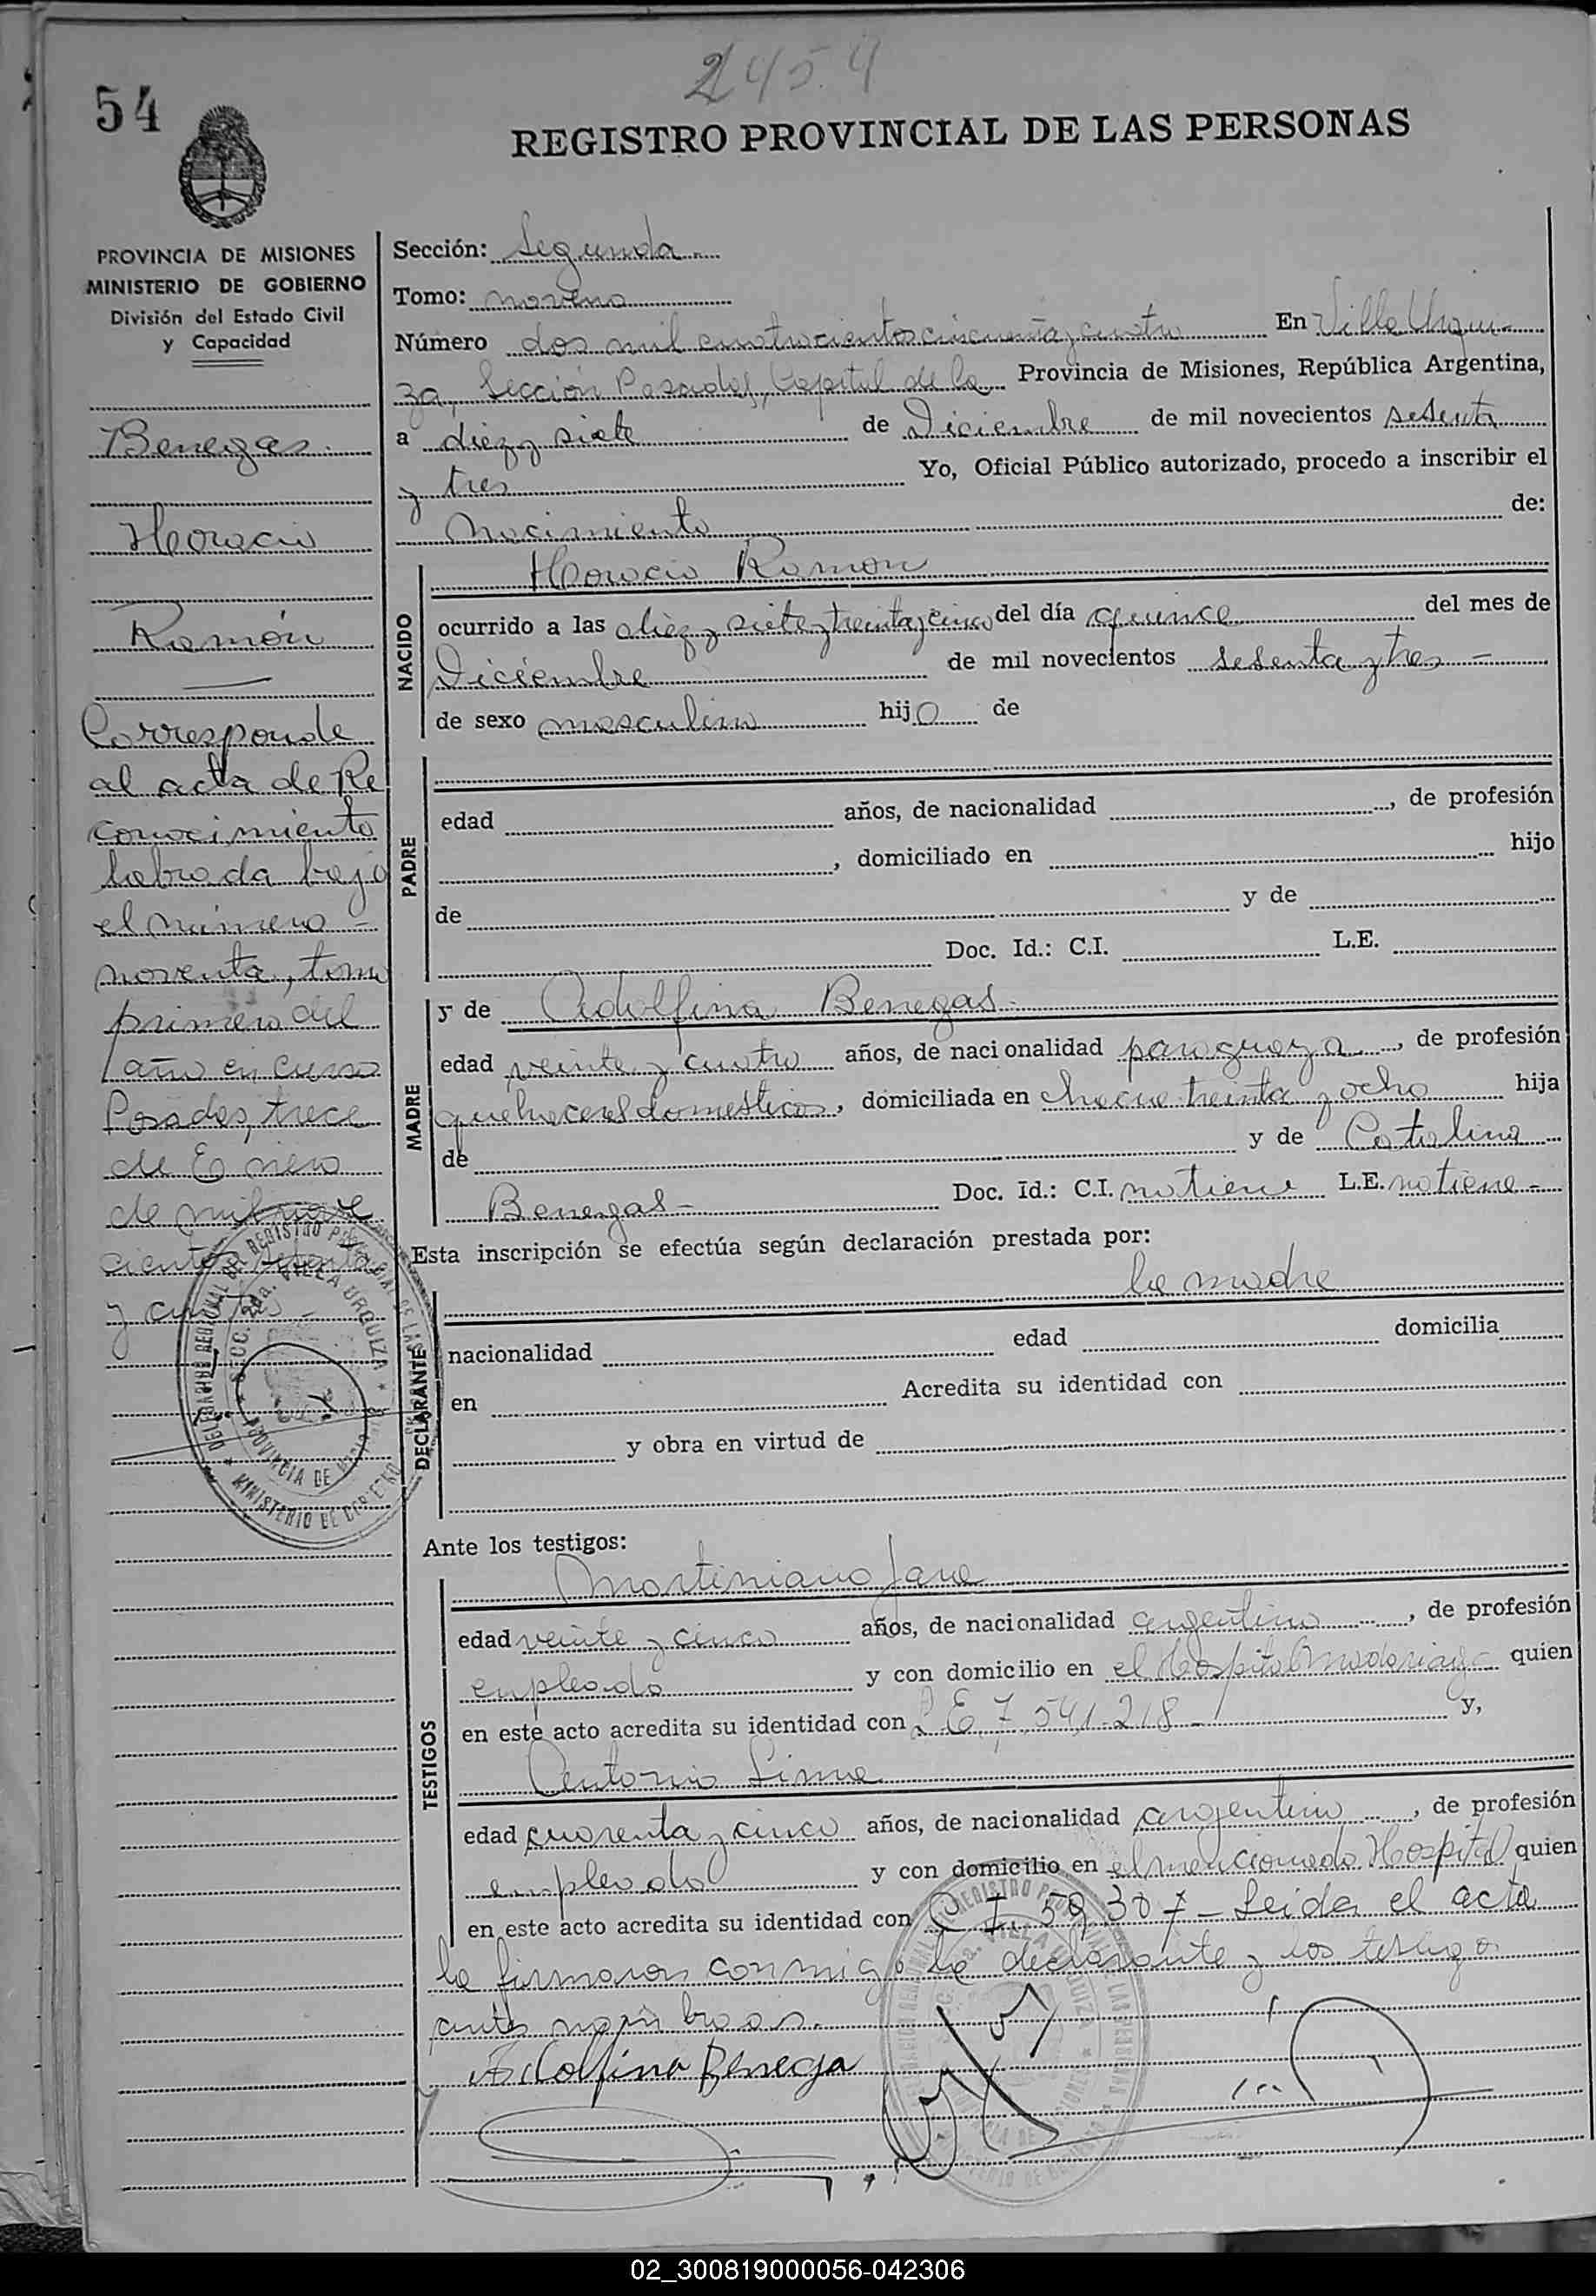 2454
54
REGISTRO PROVINCIAL DE LAS PERSONAS
PROVINCIA DE MISIONES
MINISTERIO DE GOBIERNO
División del Estado Civil
y Capacidad
Benegas
Horacio
Ramón
Corresponde
al acta de Re
conocimiento
labrada bajo
el número
noventa, tomo
primero del
año en curso
Posadas, trece
de Enero
de mil nove
cientos setenta
y cuatro
Sección: Segunda
Tomo: noveno
Número dos mil cuatrocientos cincuenta y cuatro En Villa Urqui
za, Sección Posadas, Capital de la Provincia de Misiones, República Argentina,
a diez y siete de Diciembre de mil novecientos sesenta
y tres Yo, Oficial Público autorizado, procedo a inscribir el
nacimiento de:
NACIDO
Horacio Ramon
ocurrido a las diez y siete y treinta y cinco del día quince del mes de
Diciembre de mil novecientos sesenta y tres
de sexo masculino hijo de
PADRE
edad años, de nacionalidad , de profesión
, domiciliado en hijo
de y de
Doc. Id.: C.I. L.E.
MADRE
y de Adolfina Benegas
edad veinte y cuatro años, de nacionalidad paraguaya, de profesión
quehaceres domesticos, domiciliada en chacra treinta y ocho hija
de y de Catalina
Benegas Doc. Id.: C.I. no tiene L.E. no tiene
Esta inscripción se efectúa según declaración prestada por:
la madre
DECLARANTE
nacionalidad edad domicilia
en Acredita su identidad con
y obra en virtud de
Ante los testigos:
TESTIGOS
Martiniano Jara
edad veinte y cinco años, de nacionalidad argentino, de profesión
empleado y con domicilio en el Hospital Madariaga quien
en este acto acredita su identidad con L E 7.541.218 y,
Antonio Lima
edad cuarenta y cinco años, de nacionalidad argentino, de profesión
empleado y con domicilio en el mencionado Hospital quien
en este acto acredita su identidad con C I. 59307 - Leida el acta
la firmaron conmigo la declarante y los testigos
antes nombrados.
Adolfina Benega
02_300819000056-042306